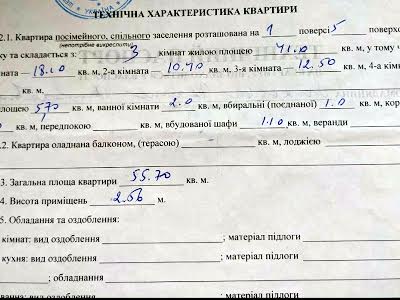 УКРАЇНА
ТЕХНІЧНА ХАРАКТЕРИСТИКА КВАРТИРИ
2.1. Квартира посімейного, спільного заселення розташована на 1 поверсі 5 поверхо
(непотрібне викреслити)
ку та складається з: 3 кімнат жилою площею 41.10 кв. м, у тому ч
мната — 18.00 кв. м, 2-а кімната 10.40 кв. м, 3-я кімната — 12.50 кв. м, 4-а кімн
кв. м.
площею 5.70 кв. м, ванної кімнати 2.0 кв. м, вбиральні (поєднаної) 1.0 кв. м, кор
кв. м, передпокою кв. м, вбудованої шафи 1.10 кв. м, веранди
.2. Квартира оладнана балконом, (терасою) кв. м, лоджією
3. Загальна площа квартири 55.70 кв. м.
4. Висота приміщень 2.56 м.
5. Обладання та оздоблення:
кімнат: вид оздоблення ; матеріал підлоги
кухня: вид оздоблення ; матеріал підлоги
; обладнання
ванна: вид оздоблення ; матеріал підлоги